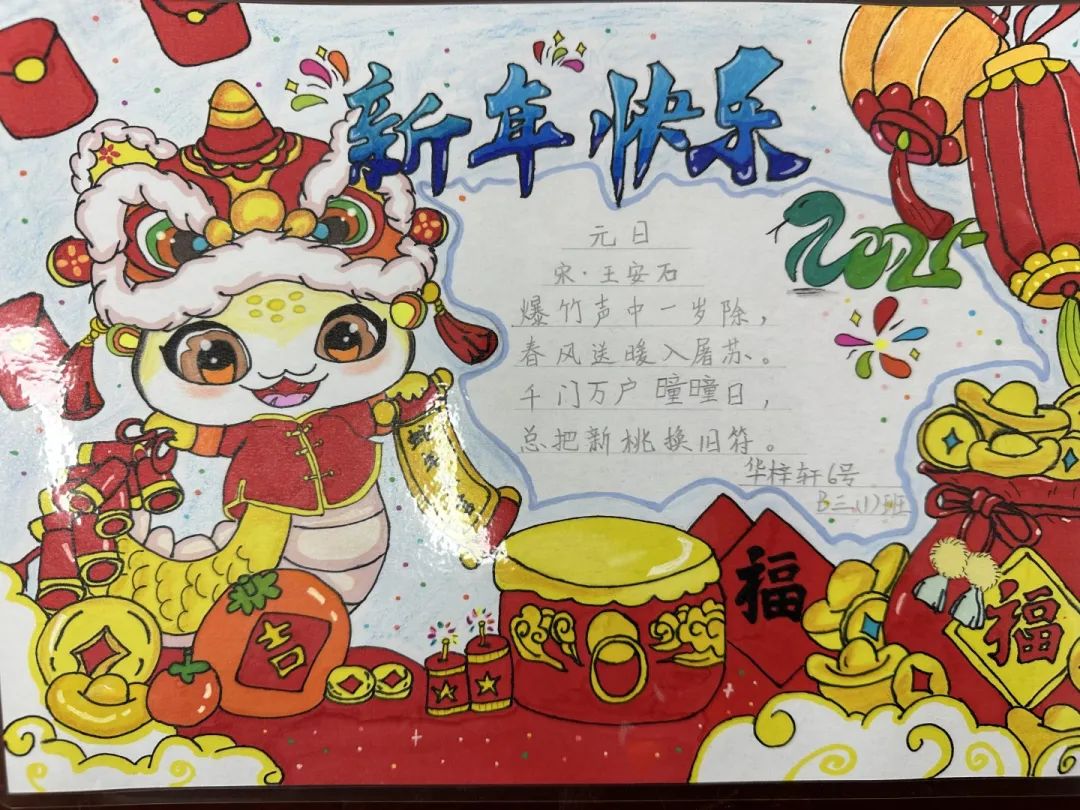 新年快乐
2025
元日
宋·王安石
爆竹声中一岁除，
春风送暖入屠苏。
千门万户曈曈日，
总把新桃换旧符。
华梓轩6号
B三(1)班
福
福
吉